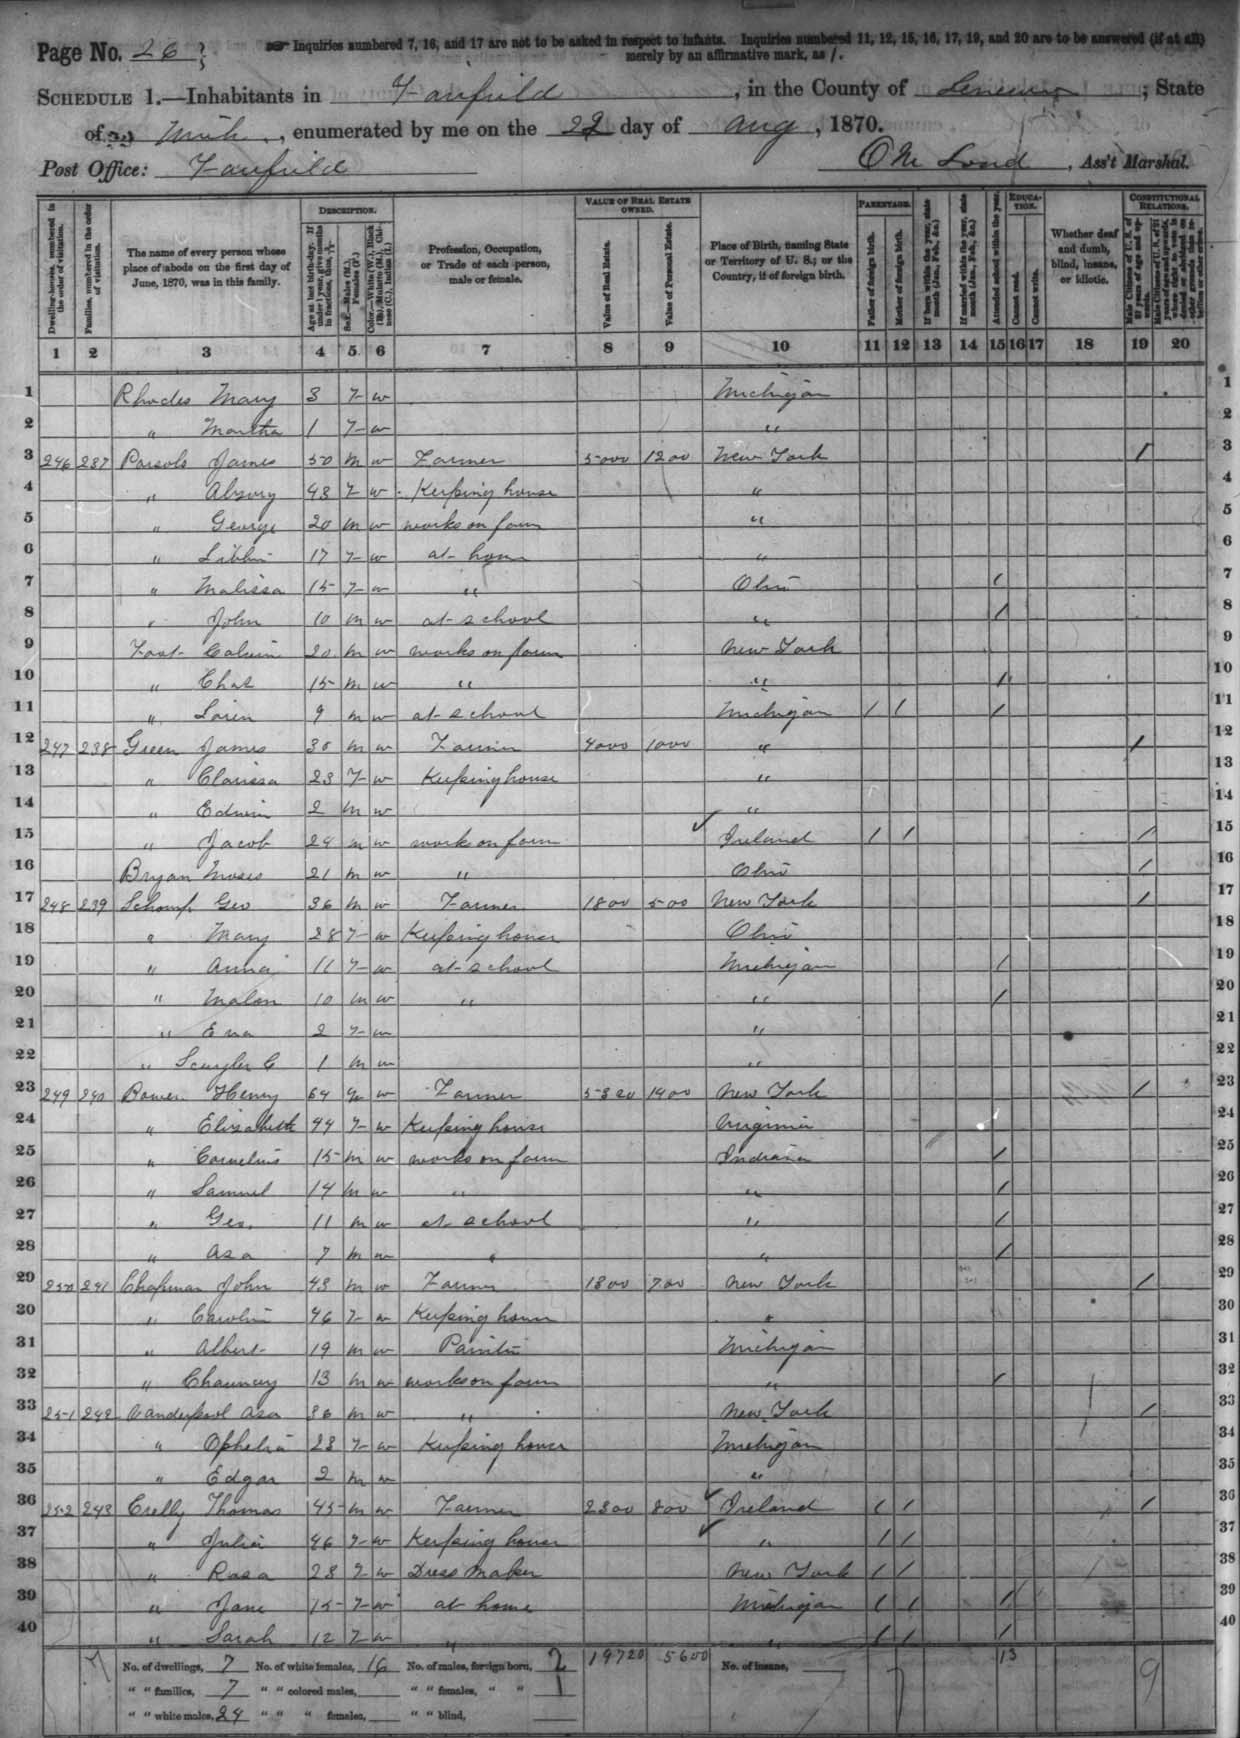 Page No. 26
Inquiries numbered 7, 16, and 17 are not to be asked in respect to infants. Inquiries numbered 11, 12, 15, 16, 17, 19, and 20 are to be answered (if at all)
merely by an affirmative mark, as /.
SCHEDULE 1.—Inhabitants in Fairfield, in the County of Lenawee; State
of Mich, enumerated by me on the 22 day of Aug, 1870.
Post Office: Fairfield O M Lond, Ass't Marshal.
DESCRIPTION. VALUE OF REAL ESTATE OWNED. PARENTAGE. EDUCATION. CONSTITUTIONAL RELATIONS.
Dwelling-houses, numbered in the order of visitation.
Families, numbered in the order of visitation.
The name of every person whose place of abode on the first day of June, 1870, was in this family.
Age at last birth-day. If under 1 year, give months in fractions, thus, 3/12
Sex.—Males (M.), Females (F.)
Color.—White (W.), Black (B.), Mulatto (M.), Chinese (C.), Indian (I.)
Profession, Occupation, or Trade of each person, male or female.
Value of Real Estate.
Value of Personal Estate.
Place of Birth, naming State or Territory of U. S.; or the Country, if of foreign birth.
Father of foreign birth.
Mother of foreign birth.
If born within the year, state month (Jan., Feb., &c.)
If married within the year, state month (Jan., Feb., &c.)
Attended school within the year.
Cannot read.
Cannot write.
Whether deaf and dumb, blind, insane, or idiotic.
Male Citizens of U. S. of 21 years of age and upwards.
1 2 3 4 5 6 7 8 9 10 11 12 13 14 15 16 17 18 19 20
1 Rhodes Mary 3 F w Michigan 1
2 " Martha 1 F w " 2
3 246 237 James 50 M w Farmer 5000 1200 New York / 3
4 " 48 F w Keeping house " 4
5 " George 20 M w works on farm " 5
6 " 17 F w at home " 6
7 " Malissa 15 F w " Ohio / 7
8 " John 10 M w at school " / 8
9 Foot Calvin 20 M w works on farm New York 9
10 " Chas 15 M w " " / 10
11 " Loren 9 M w at school Michigan / / / 11
12 247 238 Green James 30 M w Farmer 4000 1000 " / 12
13 " Clarissa 23 F w Keeping house " 13
14 " Edwin 2 M w " 14
15 " Jacob 24 M w work on farm Ireland / / / 15
16 Bryan Moses 21 M w " Ohio / 16
17 248 239 Schomp Geo 36 M w Farmer 1800 500 New York / 17
18 " Mary 28 F w Keeping house Ohio 18
19 " Anna 11 F w at school Michigan / 19
20 " Malon 10 M w " " / 20
21 " Eva 2 F w " 21
22 " C 1 M w " 22
23 249 240 Bower Henry 64 M w Farmer 5320 1400 New York / 23
24 " Elizabeth 44 F w Keeping house Virginia 24
25 " Cornelius 15 M w works on farm Indiana / 25
26 " Samuel 14 M w " " / 26
27 " Geo. 11 M w at school " / 27
28 " Asa 7 M w " " / 28
29 250 241 Chapman John 43 M w Farmer 1300 700 New York / 29
30 " Carolin 46 F w Keeping house " 30
31 " Albert 19 M w Painter Michigan 31
32 " Chauncey 13 M w works on farm " / 32
33 251 242 Vanderpool Asa 36 M w " New York / 33
34 " Ophelia 23 F w Keeping house Michigan 34
35 " Edgar 2 M w " 35
36 252 243 Crelly Thomas 45 M w Farmer 2300 800 Ireland / / / 36
37 " Julia 46 F w Keeping house " / / 37
38 " Rosa 23 F w Dress Maker New York / / 38
39 " Jane 15 F w at home Michigan / / / 39
40 " Sarah 12 F w " " / / / 40
No. of dwellings, 7 No. of white females, 16 No. of males, foreign born, 2 19720 5600 No. of insane, 13 9
" " families, 7 " " colored males, " " females, " " 1
" " white males, 24 " " " females, " " blind,